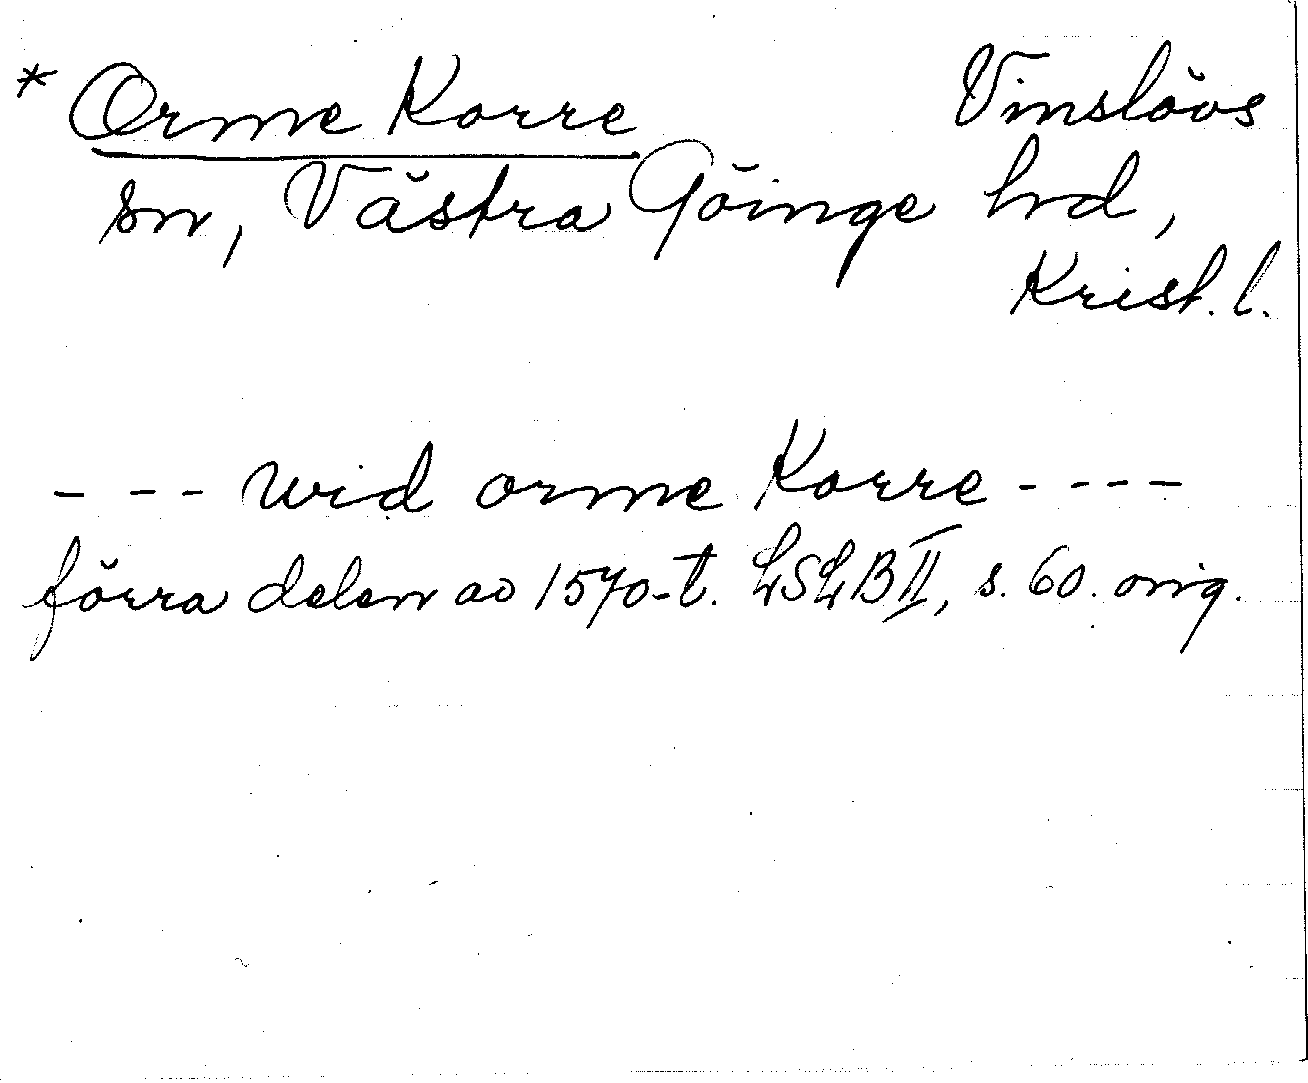 * Orme Korre Vinslövs
sn, Västra Göinge hrd,
Krist. l.
- - - wid orme Korre - - - -
förra delen av 1570-t. LSLB II, s. 60. orig.